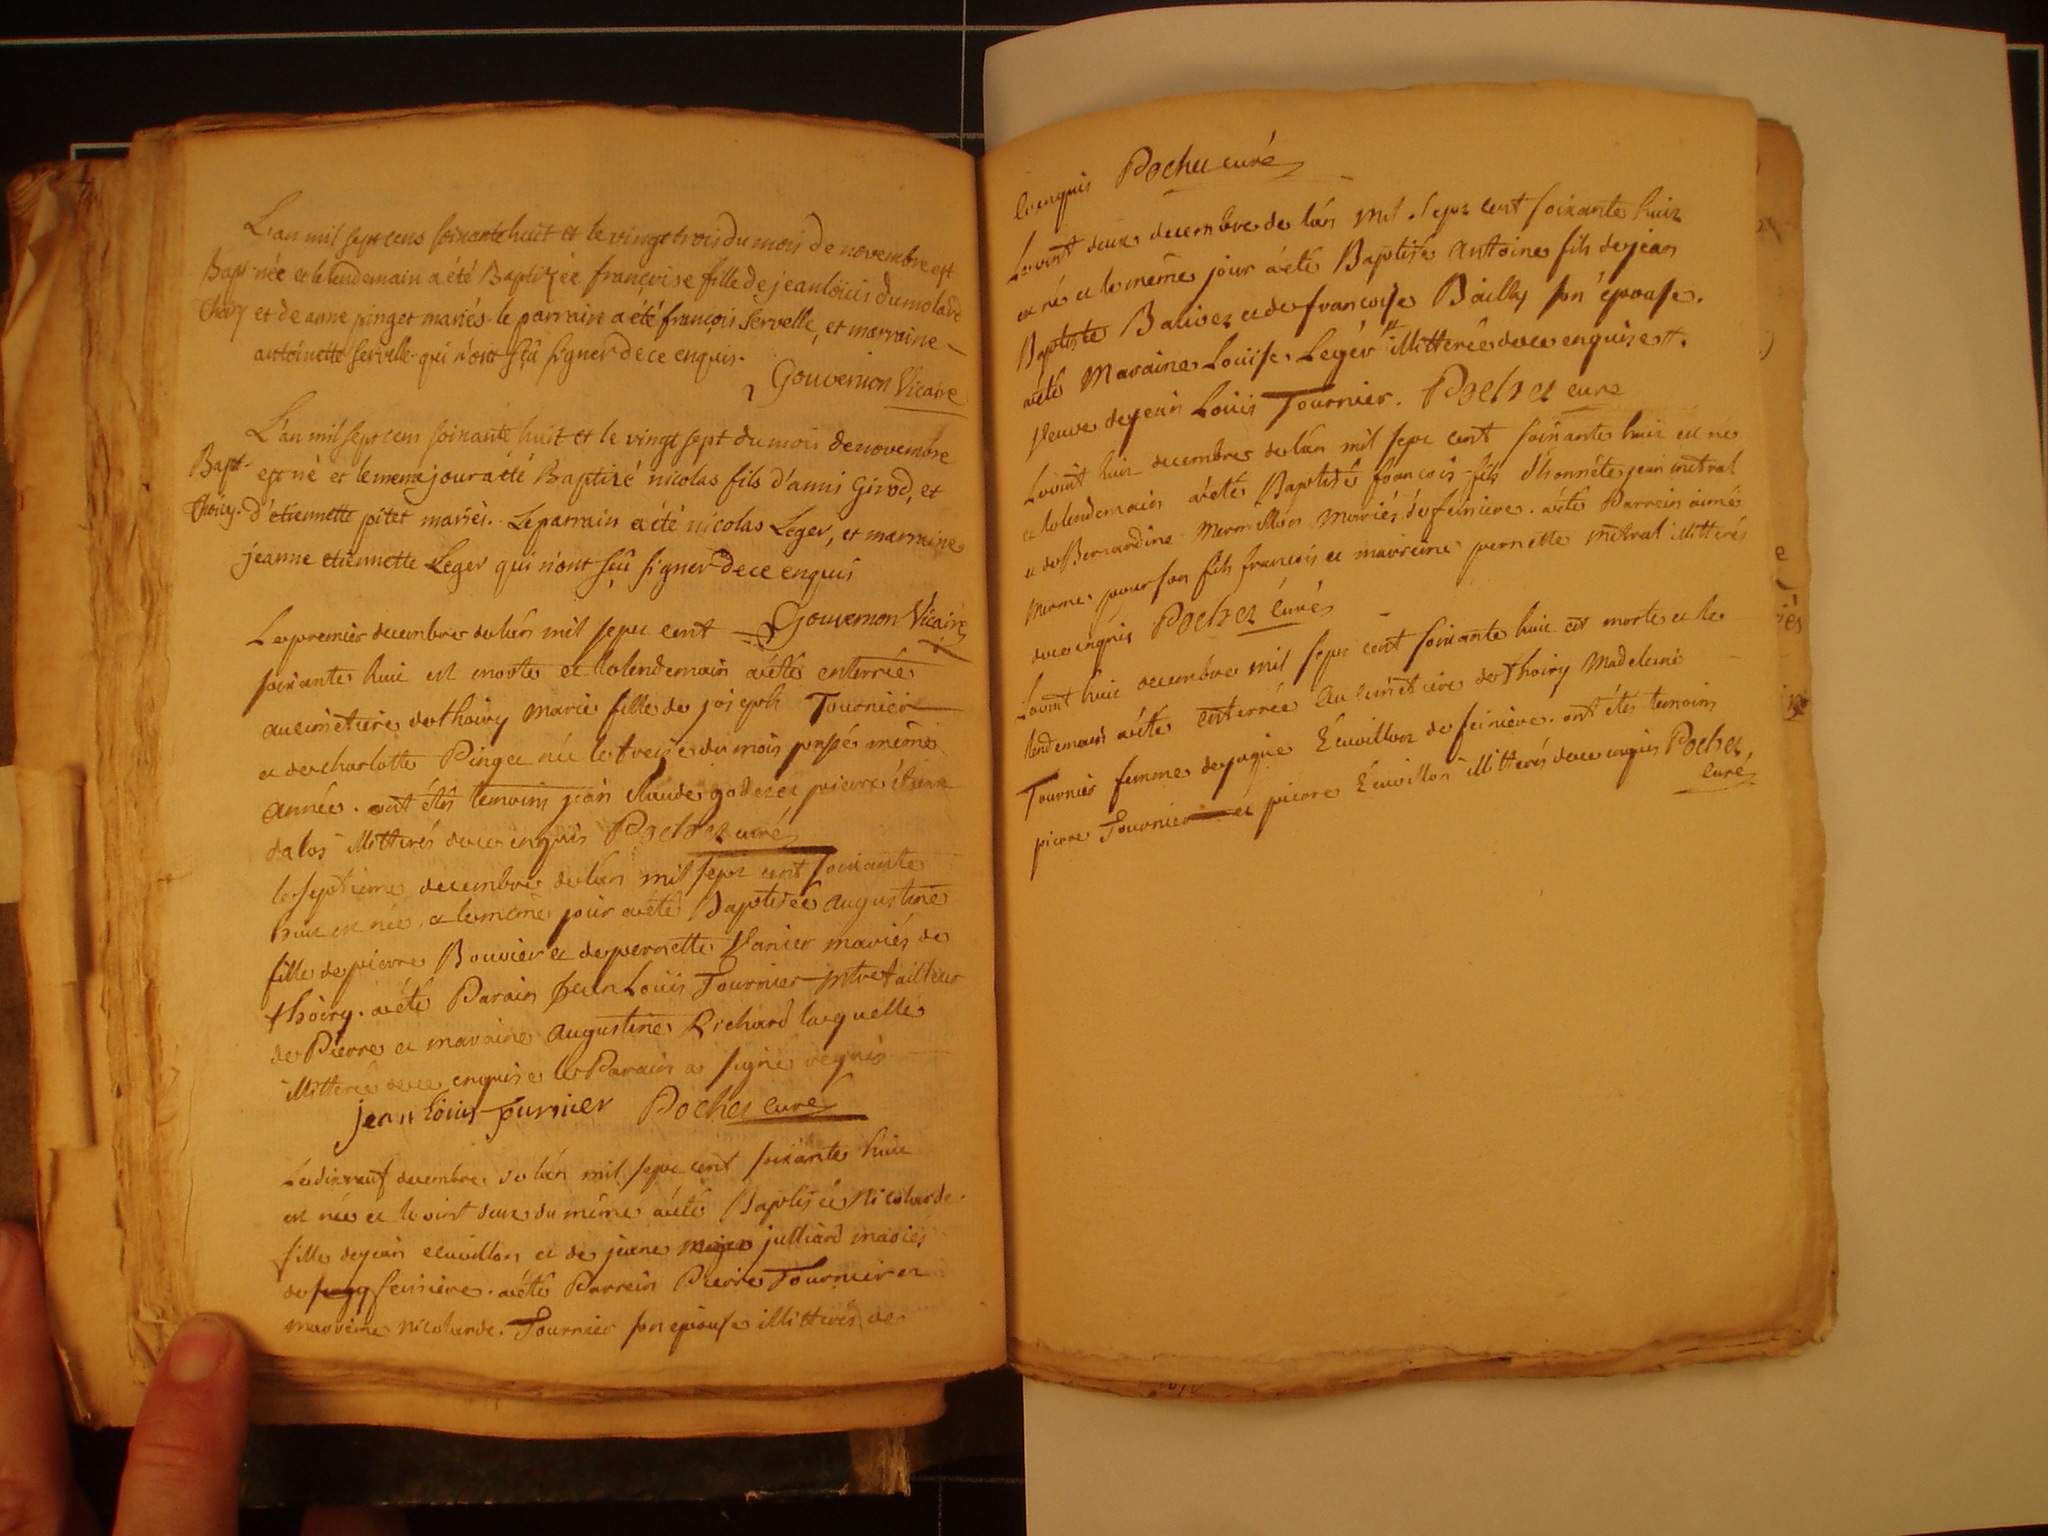 L'an mil sept cens soixante huit et le vingt trois du mois de novembre est
Bapt. née et le lendemain a été Baptizée françoise fille de jean loüis dumolard
Thoiry et de anne pinget mariés. le parrain a été françois Servelle, et marraine
antoinette servelle qui n'ont sçû signer de ce enquis.
Gouvernon Vicaire
L'an mil sept cens soixante huit et le vingt sept du mois de novembre
Bapt. est né et le meme jour a été Baptizé nicolas fils d'ami Girod, et
Thoiry. d'etiennette pitet mariés. Le parrain a été nicolas Leger, et marraine
jeanne etiennette Leger qui n'ont sçû signer de ce enquis
Gouvernon Vicaire
Le premier decembre de lán mil sept cent
soixante huit est morte et le lendemain aété enterrée
au cimetiere de thoiry Marie fille de joseph Tournier
et de charlotte Pinget née le treize du mois passé même
année. ont étés temoins jean Claude godet et pierre étienne
dalos illitterés de ce enquis Pochet curé
le septieme decembre de lán mil sept cent soixante
huit est née, et le même jour aété Baptisée augustine
fille de pierre Bouvier et de pernette Vanier mariés de
thoiry. aété Parain Jean Loüis Tournier mtre tailleur
de Pierre et maraine augustine Richard laquelle
illitterée de ce enquise le Parain a signé requis
jean loüis fournier Pochet curé
Le dixneuf decembre de lán mil sept cent soixante huit
est née et le vint deux du même aété Baptisée Nicolarde
fille de jean ecuvillon et de jeane julliard mariés
de feiniere. aété Parrein Pierre Tournier et
marreine nicolarde Tournier son epouse illitterés de
ce enquis Pochet curé
Le vint deux decembre de lán mil sept cent soixante huit
est né et le même jour aété Baptisé Antoine fils de jean
Baptiste Balivet et de francoise Bailly son épouse.
aété Maraine Loüise Legér illitterée de ce enquise
veuve de jean Loüis Tournier. Pochet curé
Le vint huit decembre de lán mil sept cent soixante huit est né
et le lendemain aété Baptisé francois fils d'honnéte jean métral
et de Bernardine Mermillon Mariés de feiniere. aété Parrein aimé
merme pour son fils francois et marreine pernette métral illitterés
de ce enquis Pochet Curé
Le vint huit decembre mil sept cent soixante huit est morte et le
lendemain aété enterrée au cimetiere de thoiry Madeleine
Tournier femme de jaque Ecuvillon de feiniére. ont étés temoins
pierre Tournier et pierre Ecuvillon illitterés de ce enquis Pochet
curé